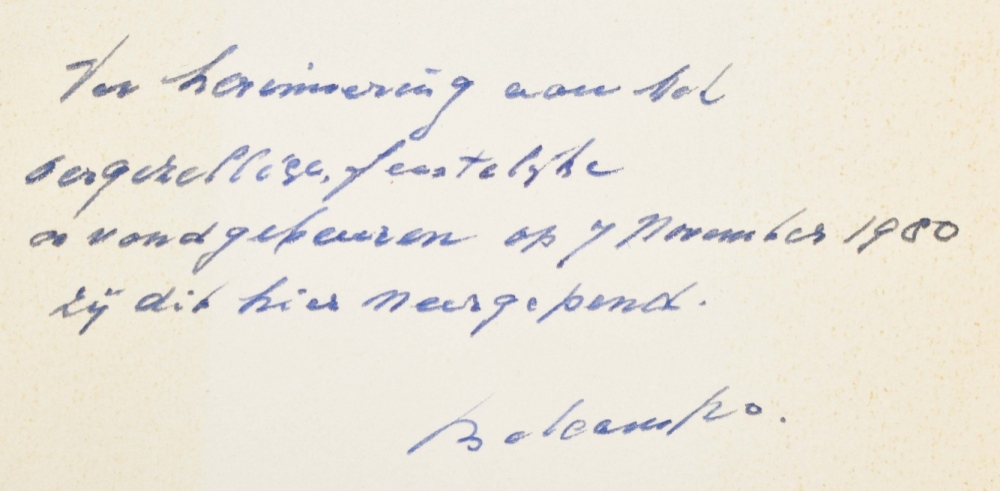 Ter herinnering aan het
oergezellige, feestelijke
avondgebeuren op 7 November 1980
zij dit hier neergepend.
Belcampo.